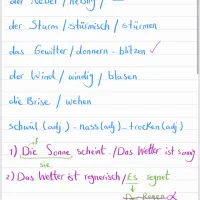 der Nebel / neblig / —
der Sturm / stürmisch / stürmen
das Gewitter / donnern - blitzen ✓
der Wind / windig / blasen
die Brise / wehen
schwül (adj) - nass (adj) - trocken (adj)
1) Die Sonne scheint. / Das Wetter ist sonnig
sie
2) Das Wetter ist regnerisch / Es regnet
Der Regen